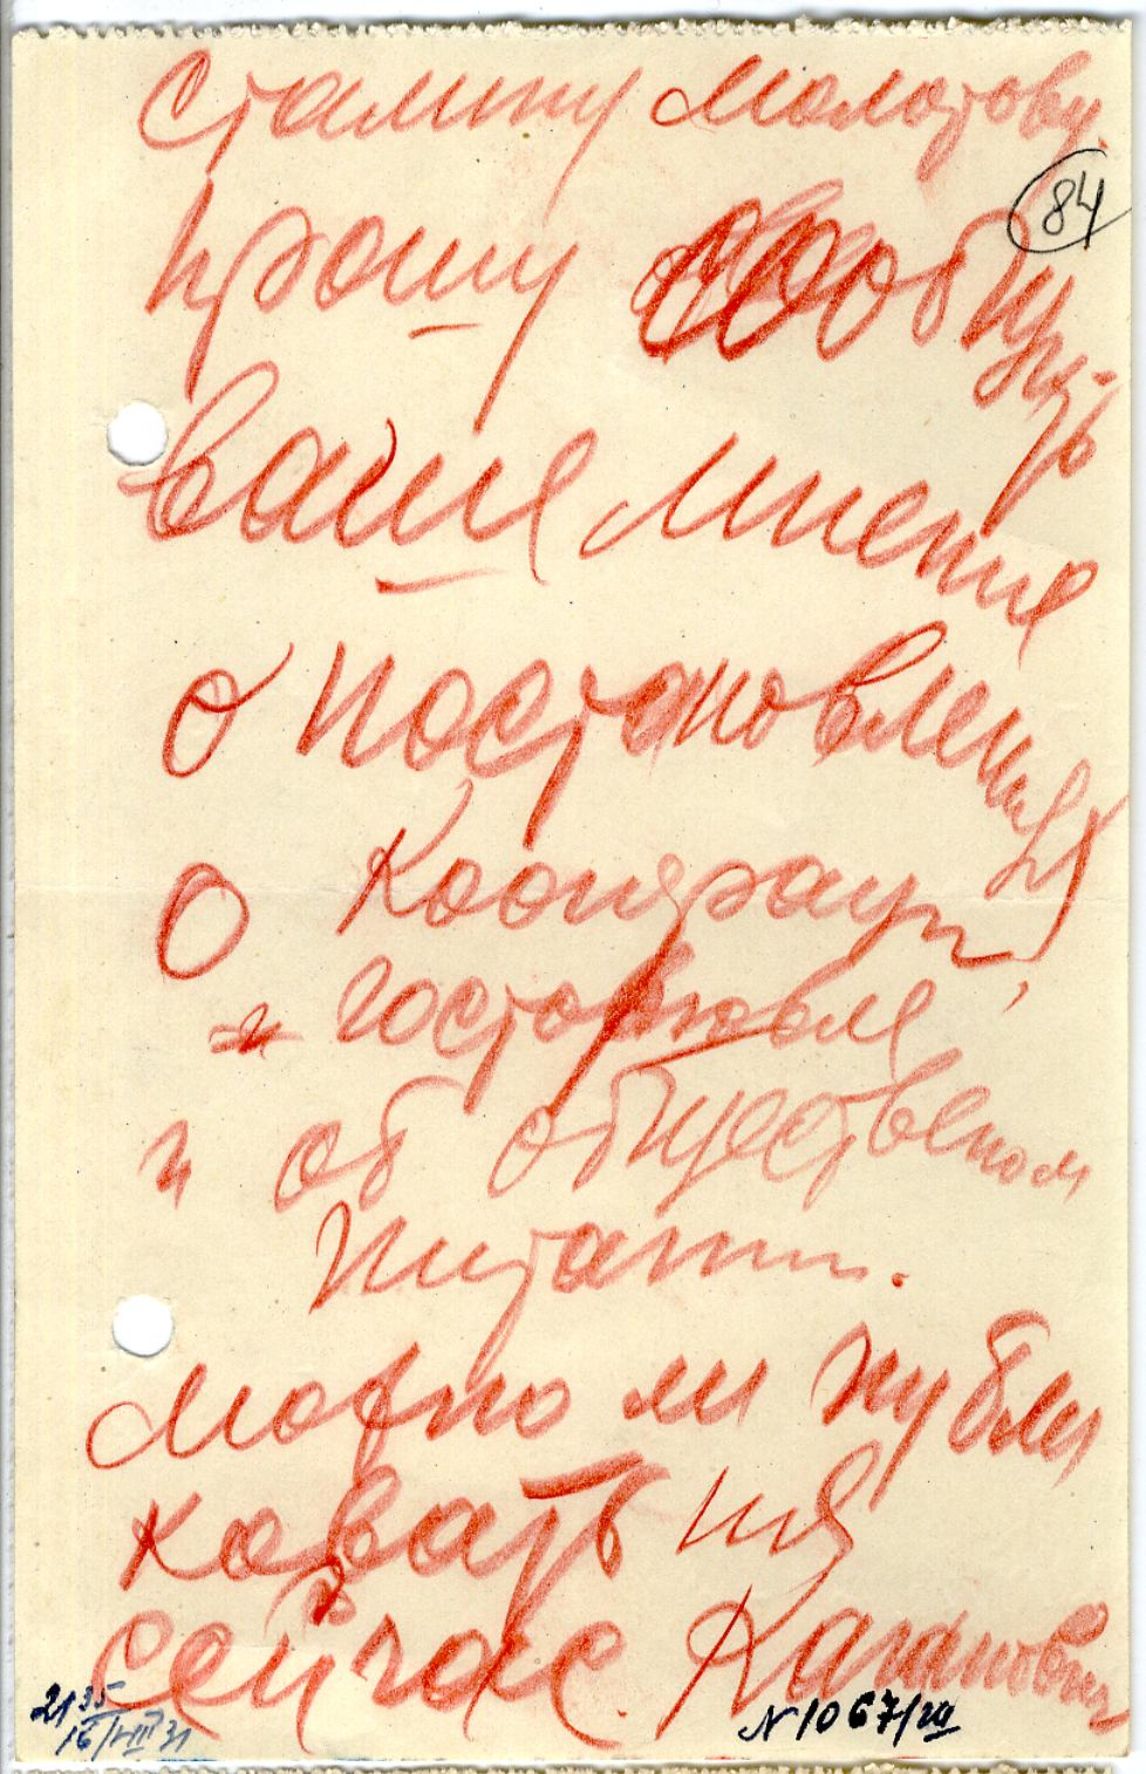 Сталину Молотову.
84
Прошу сообщить
ваше мнение
о постановлениях
о кооперации,
и госторговле
и об общественном
питании.
Можно ли публи
ковать их
сейчас. Каганович
21 35
16/VIII 31
N 1067/